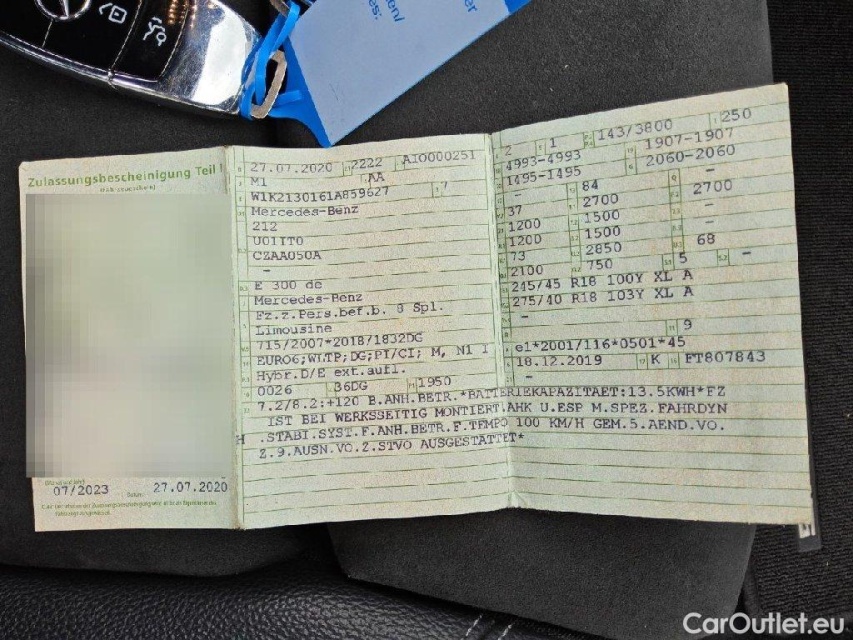 en/
es:
er
Zulassungsbescheinigung Teil I
(Fahrzeugschein)
07/2023
27.07.2020
27.07.2020 2222 AIO000251
M1 AA
W1K2130161A859627 7
Mercedes-Benz
212
U0IIT0
CZAA050A
-
E 300 de
Mercedes-Benz
Fz.z.Pers.bef.b. 8 Spl.
Limousine
715/2007*2018/1832DG
EURO6;WLTP;DG;PI/CI; M, N1 I
Hybr.D/E ext.aufl.
0026 36DG 1950
2 1 143/3800 250
4993-4993 1907-1907
1495-1495 2060-2060
- 84 -
37 2700 2700
1200 1500 -
1200 1500 -
73 2850 68
2100 750 5 -
245/45 R18 100Y XL A
275/40 R18 103Y XL A
-
- 9
e1*2001/116*0501*45
18.12.2019 K FT807843
-
7.2/8.2:+120 B.ANH.BETR.*BATTERIEKAPAZITAET:13.5KWH*FZ
IST BEI WERKSSEITIG MONTIERT.AHK U.ESP M.SPEZ.FAHRDYN
.STABI.SYST.F.ANH.BETR.F.TEMPO 100 KM/H GEM.5.AEND.VO.
Z.9.AUSN.VO.Z.STVO AUSGESTATTET*
CarOutlet.eu